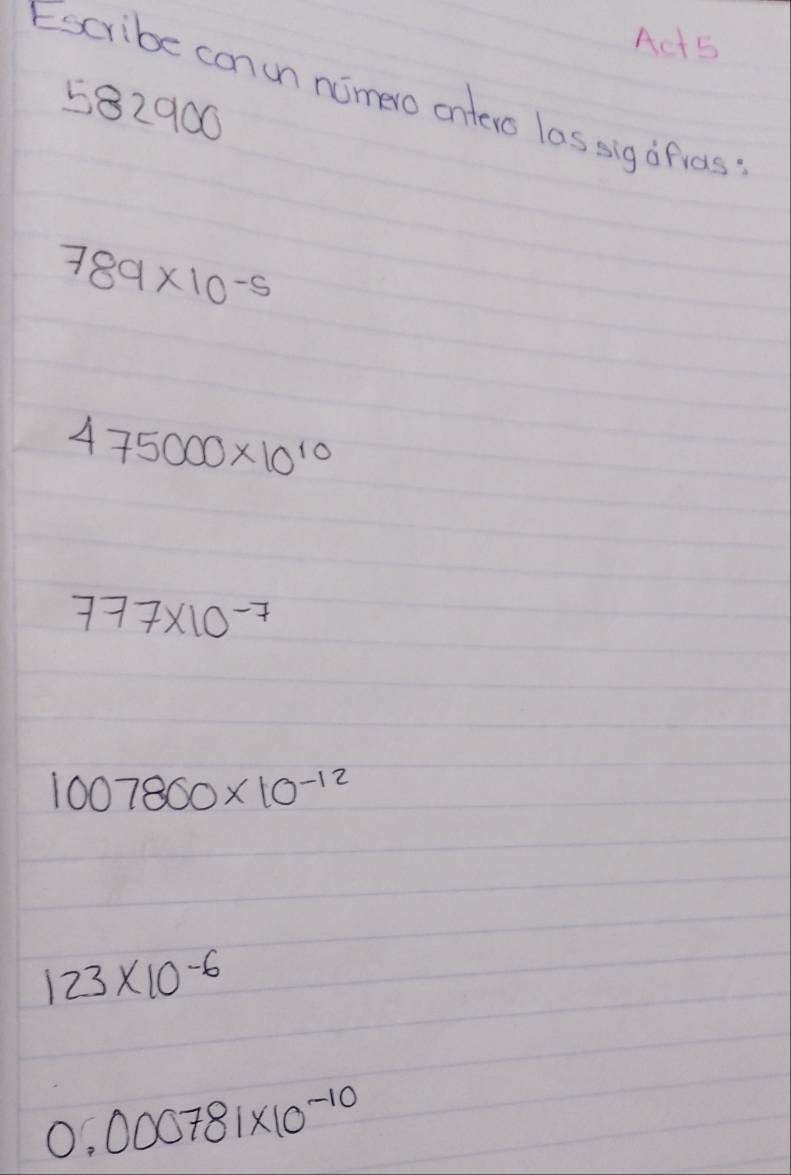 Act 5
Escribe con un número entero las sig cifras:
582900
789x10-5
475000x10¹⁰
777x10⁻⁷
1007800x10⁻¹²
123x10⁻⁶
0.000781x10⁻¹⁰